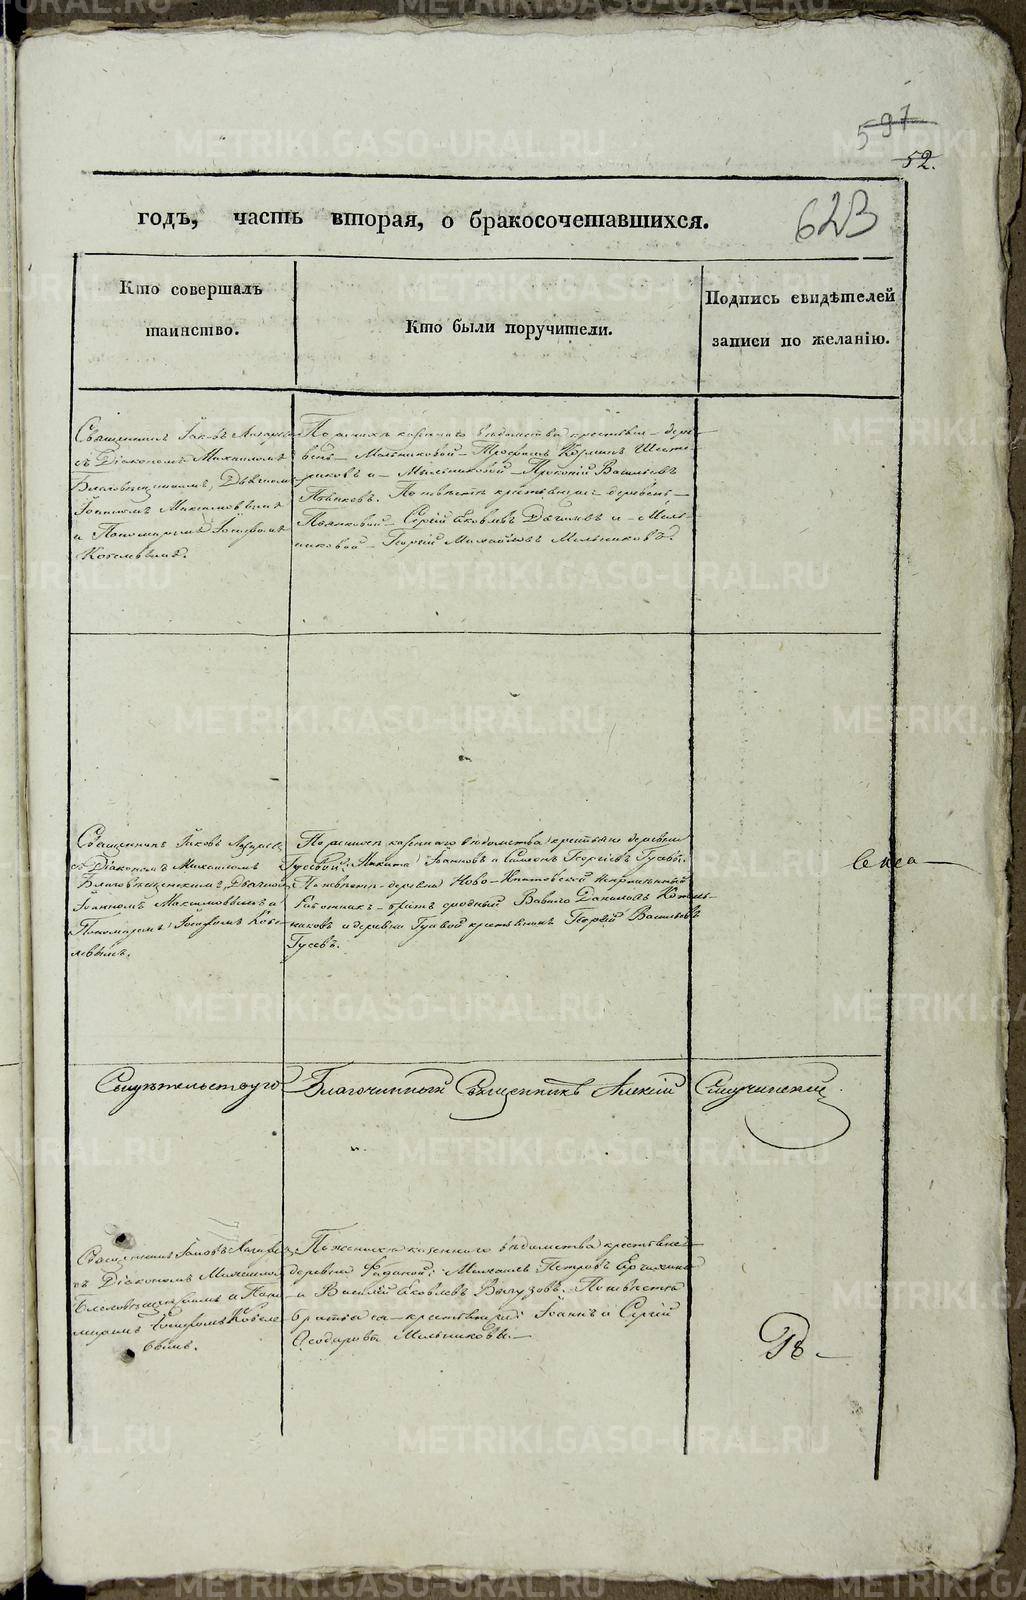 597
52.
годъ, часть вторая, о бракосочетавшихся.
62В
Кто совершалъ
таинство.
Кто были поручители.
Подпись свидѣтелей
записи по желанію.
Священникъ Іаковъ Лазаревъ
съ Діакономъ Михаиломъ
Благовѣщенскимъ, Дьячкомъ
Іоанномъ Максимовымъ
и Пономаремъ Іосифомъ
Кобелевымъ.
По женихѣ казеннаго вѣдомства крестьяне дере-
вень Мельниковой Трофимъ Козминъ Шесте-
риковъ и Мыльниковой Прокопій Васильевъ
Пьянковъ. По невѣстѣ крестьяне деревень
Пьянковой Сергій Яковлевъ и Мель-
никовой Георгій Михайловъ Мельниковъ.
Священникъ Іаковъ Лазаревъ
съ Діакономъ Михаиломъ
Благовѣщенскимъ, Дьячкомъ
Іоанномъ Максимовымъ и
Пономаремъ Іосифомъ Кобе-
левымъ.
По женихѣ казеннаго вѣдомства крестьяне деревни
Гусевой: Никита Іоанновъ и Симеонъ Георгіевъ Гусевы.
По невѣстѣ деревни Ново-
работникъ братъ сродный Вавило Даниловъ Котель-
никовъ и деревни Гусевой крестьянинъ Георгій Васильевъ
Гусевъ.
Свидѣтельствую Благочинный Священникъ Алексій
Священникъ Іаковъ Лазаревъ
съ Діакономъ Михаиломъ
Благовѣщенскимъ и Поно-
маремъ Іосифомъ Кобеле-
вымъ.
По женихѣ казеннаго вѣдомства крестьяне
деревни Михаилъ Петровъ
и Василій Яковлевъ Выгузовъ. По невѣстѣ
братья ея крестьяне Іоаннъ и Сергій
Ѳеодоровы Мельниковы.
METRIKI.GASO-URAL.RU